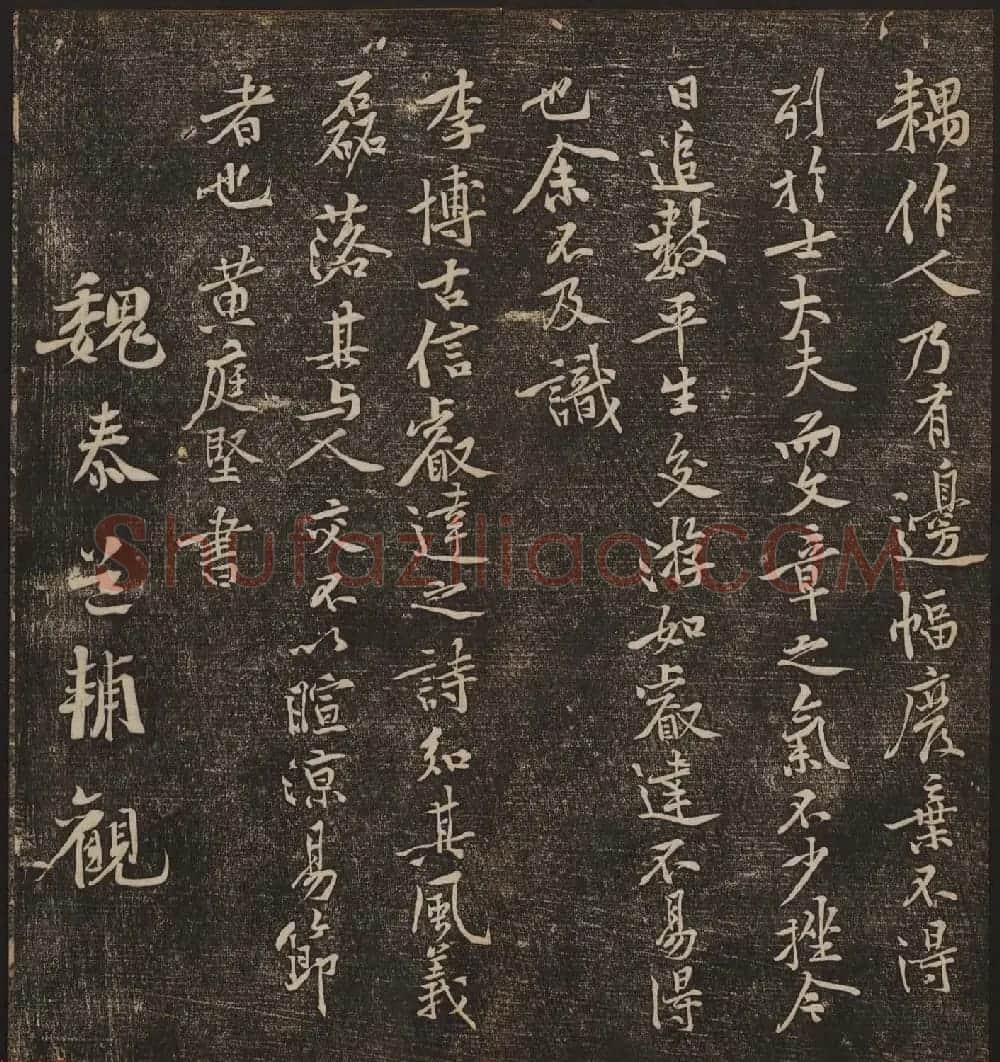 耦作人乃有邊幅廢棄不得
引於士大夫而文章之氣不少挫今
日追數平生交游如叡達不易得
也余不及識
李博古信叡達之詩知其風義
磊落其与人交不以暄涼易節
者也 黄庭堅書
魏泰道輔觀
Shufaziliao.COM